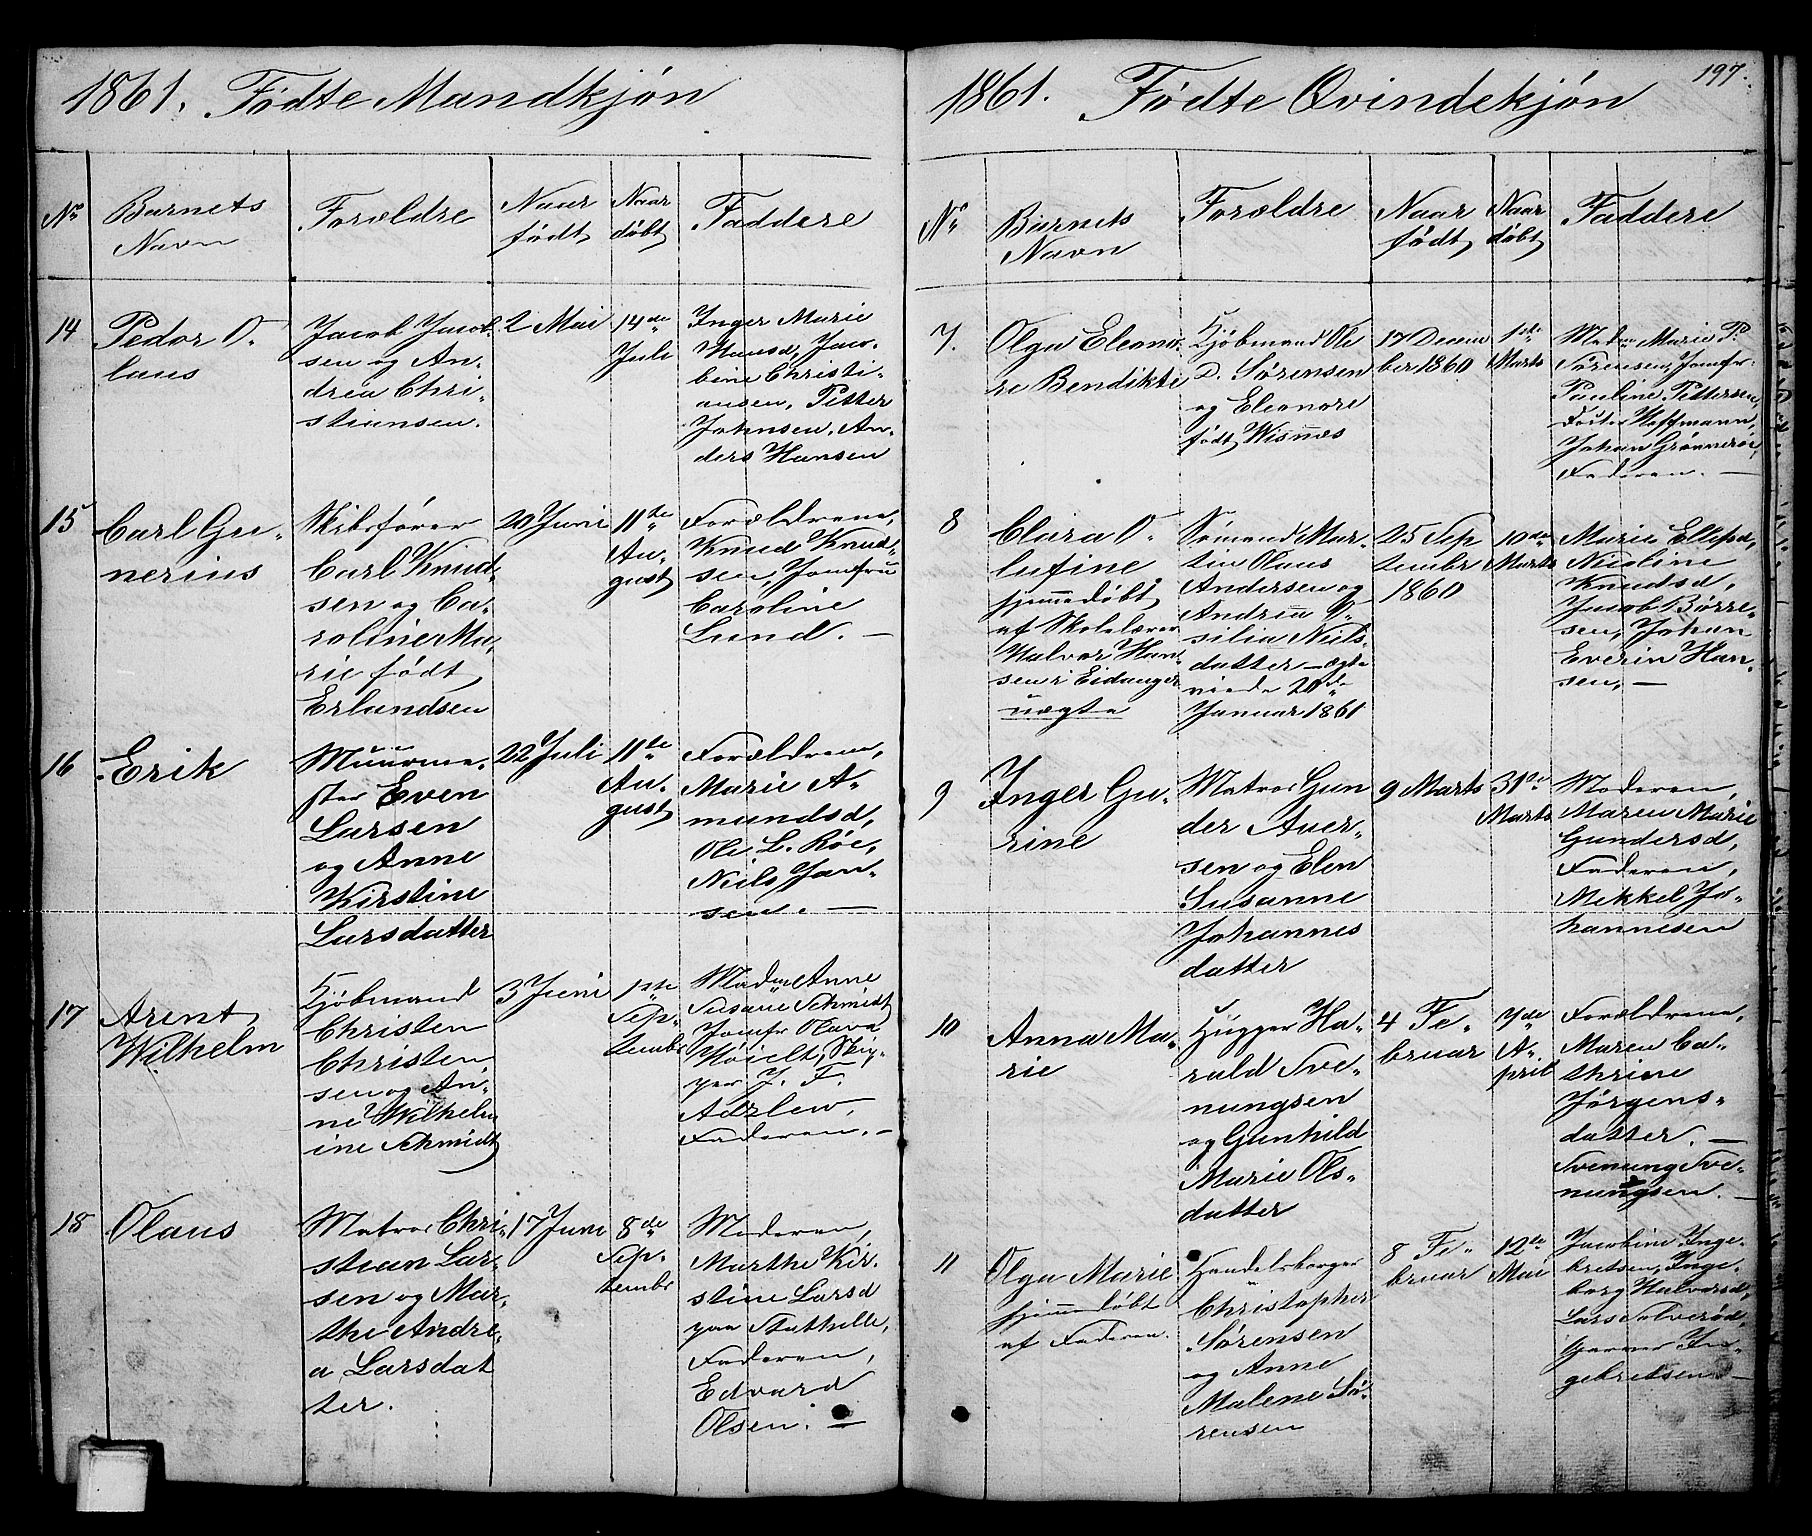 1861. Fødte Mandkjøn
No
Barnets
Navn
Forældre
Naar
født
Naar
døbt
Faddere
14
Pedor O-
laus
Jacob Jacob-
sen og An-
drea Chri-
stiansen.
2 Mai
14de
Juli
Inger Marie
Hansd, Jac-
bine Christi-
ansen, Petter
Johnsen, An-
ders Hansen
15
Carl Gu-
nerius
Skibsfører
Carl Knud-
sen og Ca-
roline Ma-
rie født
Erlandsen
20 Juni
11te
Au-
gust
Forældrene,
Knud Knud-
sen, Jomfru
Caroline
Lund. —
16
Erik
Muurme-
ster Even
Larsen
og Anne
Kirstine
Larsdatter
22 Juli
11te
Au-
gust
Forældrene,
Marie A-
mundsd,
Ole L. Røe,
Niels Jan-
sen. —
17
Arent
Wilhelm
Kjøbmand
Christen
Christen-
sen og An-
ne Wilhelm
ine Schmidt
3 Juni
1ste
Sep-
tembr
Madm Anne
Susane Schmidt
Jomfr Olava
Høielt, Skip-
per J. F.
Faderen. —
18
Olaus
Matros Chri-
stian Lar-
sen og Mar-
the Andre-
a Larsdat
ter.
17 Juni
8de
Sep-
tembr
Moderen,
Marthe Kir-
stine Larsd
paa Stathelle,
Faderen,
Edvard
Olsen. —
197.
1861. Fødte Qvindekjøn
No
Barnets
Navn
Forældre
Naar
født
Naar
døbt
Faddere
7.
Olga Eleono-
re Bendikte
Kjøbmand Ole
D. Sørensen
og Eleonore
født Wisnæs
17 Decem
ber 1860
1ste
Marts
Madm Marie P.
Sørensen, Jomfr
Pauline Pettersen,
Hoffmann,
Johan Grønnerøe,
Faderen. —
8
Clara O-
lufine
hjemmedøbt
af Skolelærer
Halvor Han-
sen i Eidanger
uægte
Sømand Mar-
tin Olaus
Andersen og
Andrea O-
silia Niels-
datter – ægte
viede 20de
Januar 1861
25 Sep
tembr
1860
10de
Marts
Marie Ellefsd,
Nicoline
Knudsd,
Jacob Børre-
sen, Johan
Everin Han-
sen. —
9
Inger Gu-
rine
Matros Gun
der Aver-
sen og Elen
Susanne
Johannes
datter
9 Marts
31te
Marts
Moderen,
Maren Marie
Gundersd,
Faderen,
Mikkel Jo-
hannesen
10
Anna Ma-
rie
Hugger Ha-
rald Sve-
nungsen
og Gunhild
Marie Ols-
datter
4 Fe-
bruar
7de
A-
pril
Forældrene,
Maren Ca-
thrine
Jørgens-
datter. —
Svenung Sve-
nungsen. —
11
Olga Marie
hjemmedøbt
af Faderen.
Handelsborger
Christopher
Sørensen
og Anne
Malene Sø-
rensen
8 Fe-
bruar
12te
Mai
Jacobine Inge-
bretsen, Inge-
borg Halvorsd,
Lars Solverød,
Garver In-
gebretsen —